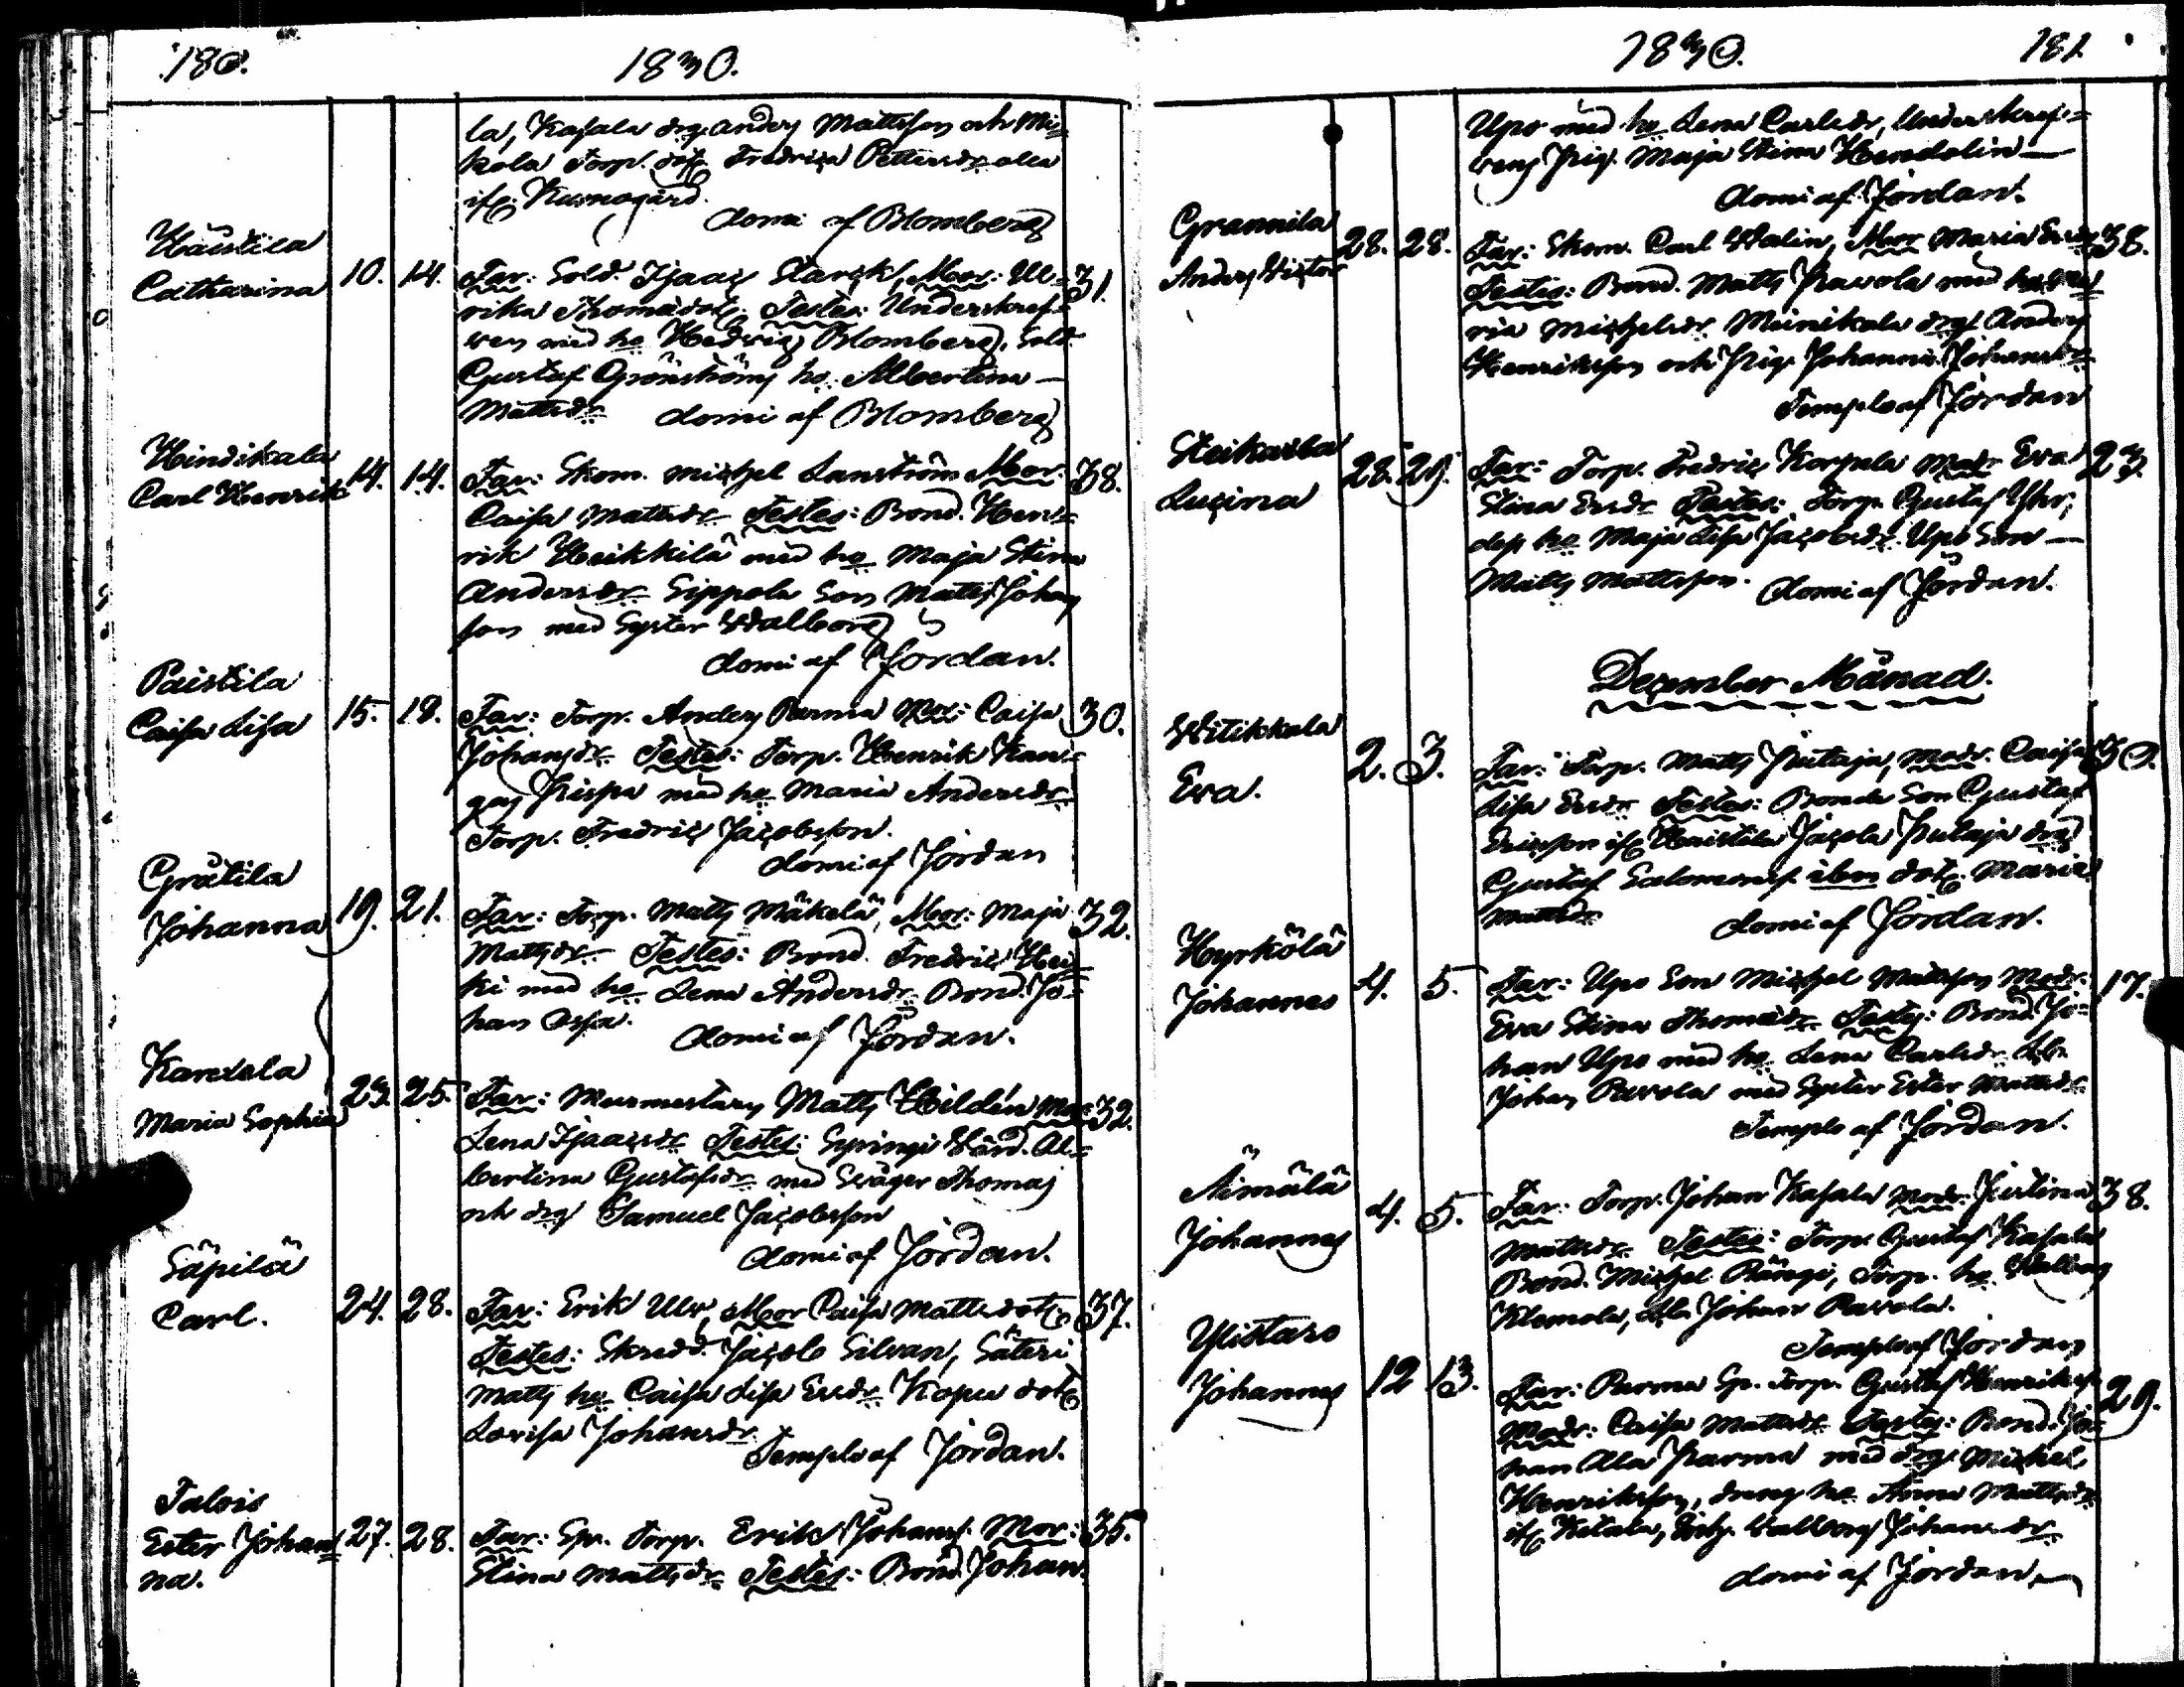 180.
1830.
la, Kasala drg. Anders Mattsson och Mi=
kola Torp. dott. Fredrica Pettersdr. alla
if. Kumogård.
domi af Blomberg
Häistila
Catharina 10. 14. Far: Sold. Isaac Starck, Mor: Ul= 31.
rika Thomædotr. Testes: Underskref=
ven med ho Hedvig Blomberg, Sold.
Gustaf Grönström ho. Albertina
Mattsdr. domi af Blomberg
Hindikala
Carl Henrik 14. 14. Far: Skom. Michel Lanström Mor. 38.
Caisa Mattsdr. Testes: Bond. Hen=
rik Heikkilä med ho Maja Stina
Andersdr. Sippola Son Matts Johan
son med Syster Walborg
domi af Jordan.
Päistila
Caisa Lisa 15. 18. Far: Torp. Anders Parma Mor: Caisa 30.
Johansdr. Testes: Torp. Henrik Kan=
gas med ho Maria Andersdr.
Torp. Fredric Jacobsson.
domi af Jordan
Grätila
Johanna 19. 21. Far: Torp. Matts Mäkelä, Mor: Maja 32.
Mattsdr. Testes: Bond. Fredric Hei=
ki med ho Lena Andersdr. Bond. Jo=
han
domi af Jordan.
Karvala
Maria Sophia 23. 25. Far: Murmestarn Matts Hildén Mor 32.
Lena Isaacsdr. Testes: Al=
bertina Gustafsdr. med Svåger Thomas
och drg Samuel Jacobsson
domi af Jordan.
Säpilä
Carl. 24. 28. Far: Erik Ulv, Mor Caisa Mattsdott. 37.
Testes: Skredd. Jacob Silvan, Säteri
Matts ho Caisa Lisa Ersdr. Kapu dott
Lovisa Johansdr.
Templo af Jordan.
Talois
Ester Johan=
na. 27. 28. Far: Sp. Torp. Erik Johanss. Mor: 35.
Stina Mattsdr. Testes: Bond. Johan
1830. 181
Upo med ho Lena Carlsdr, Underskref=
vens Pig. Maja Stina Hendolin
domi af Jordan.
Grannila
Anders Victor 28. 28. Far: Skom. Carl Walin, Mor Maria 38.
Testes: Bond. Matts Pavola med ho Ma
ria Michelsdr. Munikala drg Anders
Henriksson och Pig. Johanna Johansdr.
Templo af Jordan
Steikarla
Lucina 28. 29. Far: Torp. Fredric Korpela Modr Eva 23.
Stina Ersdr. Testes: Torp. Gustaf
ho Maja Lisa Jacobsdr. Upo Son
Matts Mattsson. domi af Jordan.
December Månad.
Witikkala
Eva. 2. 3. Far: Torp. Matts Putaja, Modr. Caisa
Lisa Ersdr. Testes: Bonde Son Gustaf
Ericsson if. Haistila Jacola Putaja drg
Gustaf Salomonss. ibm dott. Maria
Mattsdr. domi af Jordan.
Hyrkölä
Johannes 4. 5. Far: Upo Son Michel Mattsson Modr: 17.
Eva Stina Thomædr. Testes: Bond Jo=
han Upo med ho Lena Carlsdr.
Johan Pavola med Syster Ester Mattsdr.
Templo af Jordan.
Äimälä
Johannes 4. 5. Far: Torp. Johan Kasala Modr: Justina 38.
Mattsdr. Testes: Torp. Gustaf Kasala
Bond. Michel Rängi, Torp. ho. Walborg
Klemola, Johan Pavola.
Templo af Jordan
Ylistaro
Johannes 12 13. Far: Parma Sp. Torp. Gustaf Henrikss. 29.
Modr: Caisa Mattsdr. Testes: Bond. Jo=
han Ala Parma med drg. Michel
Henriksson, dreng ho Anna Mattsdr.
if. Walborg Johansdr.
domi af Jordan